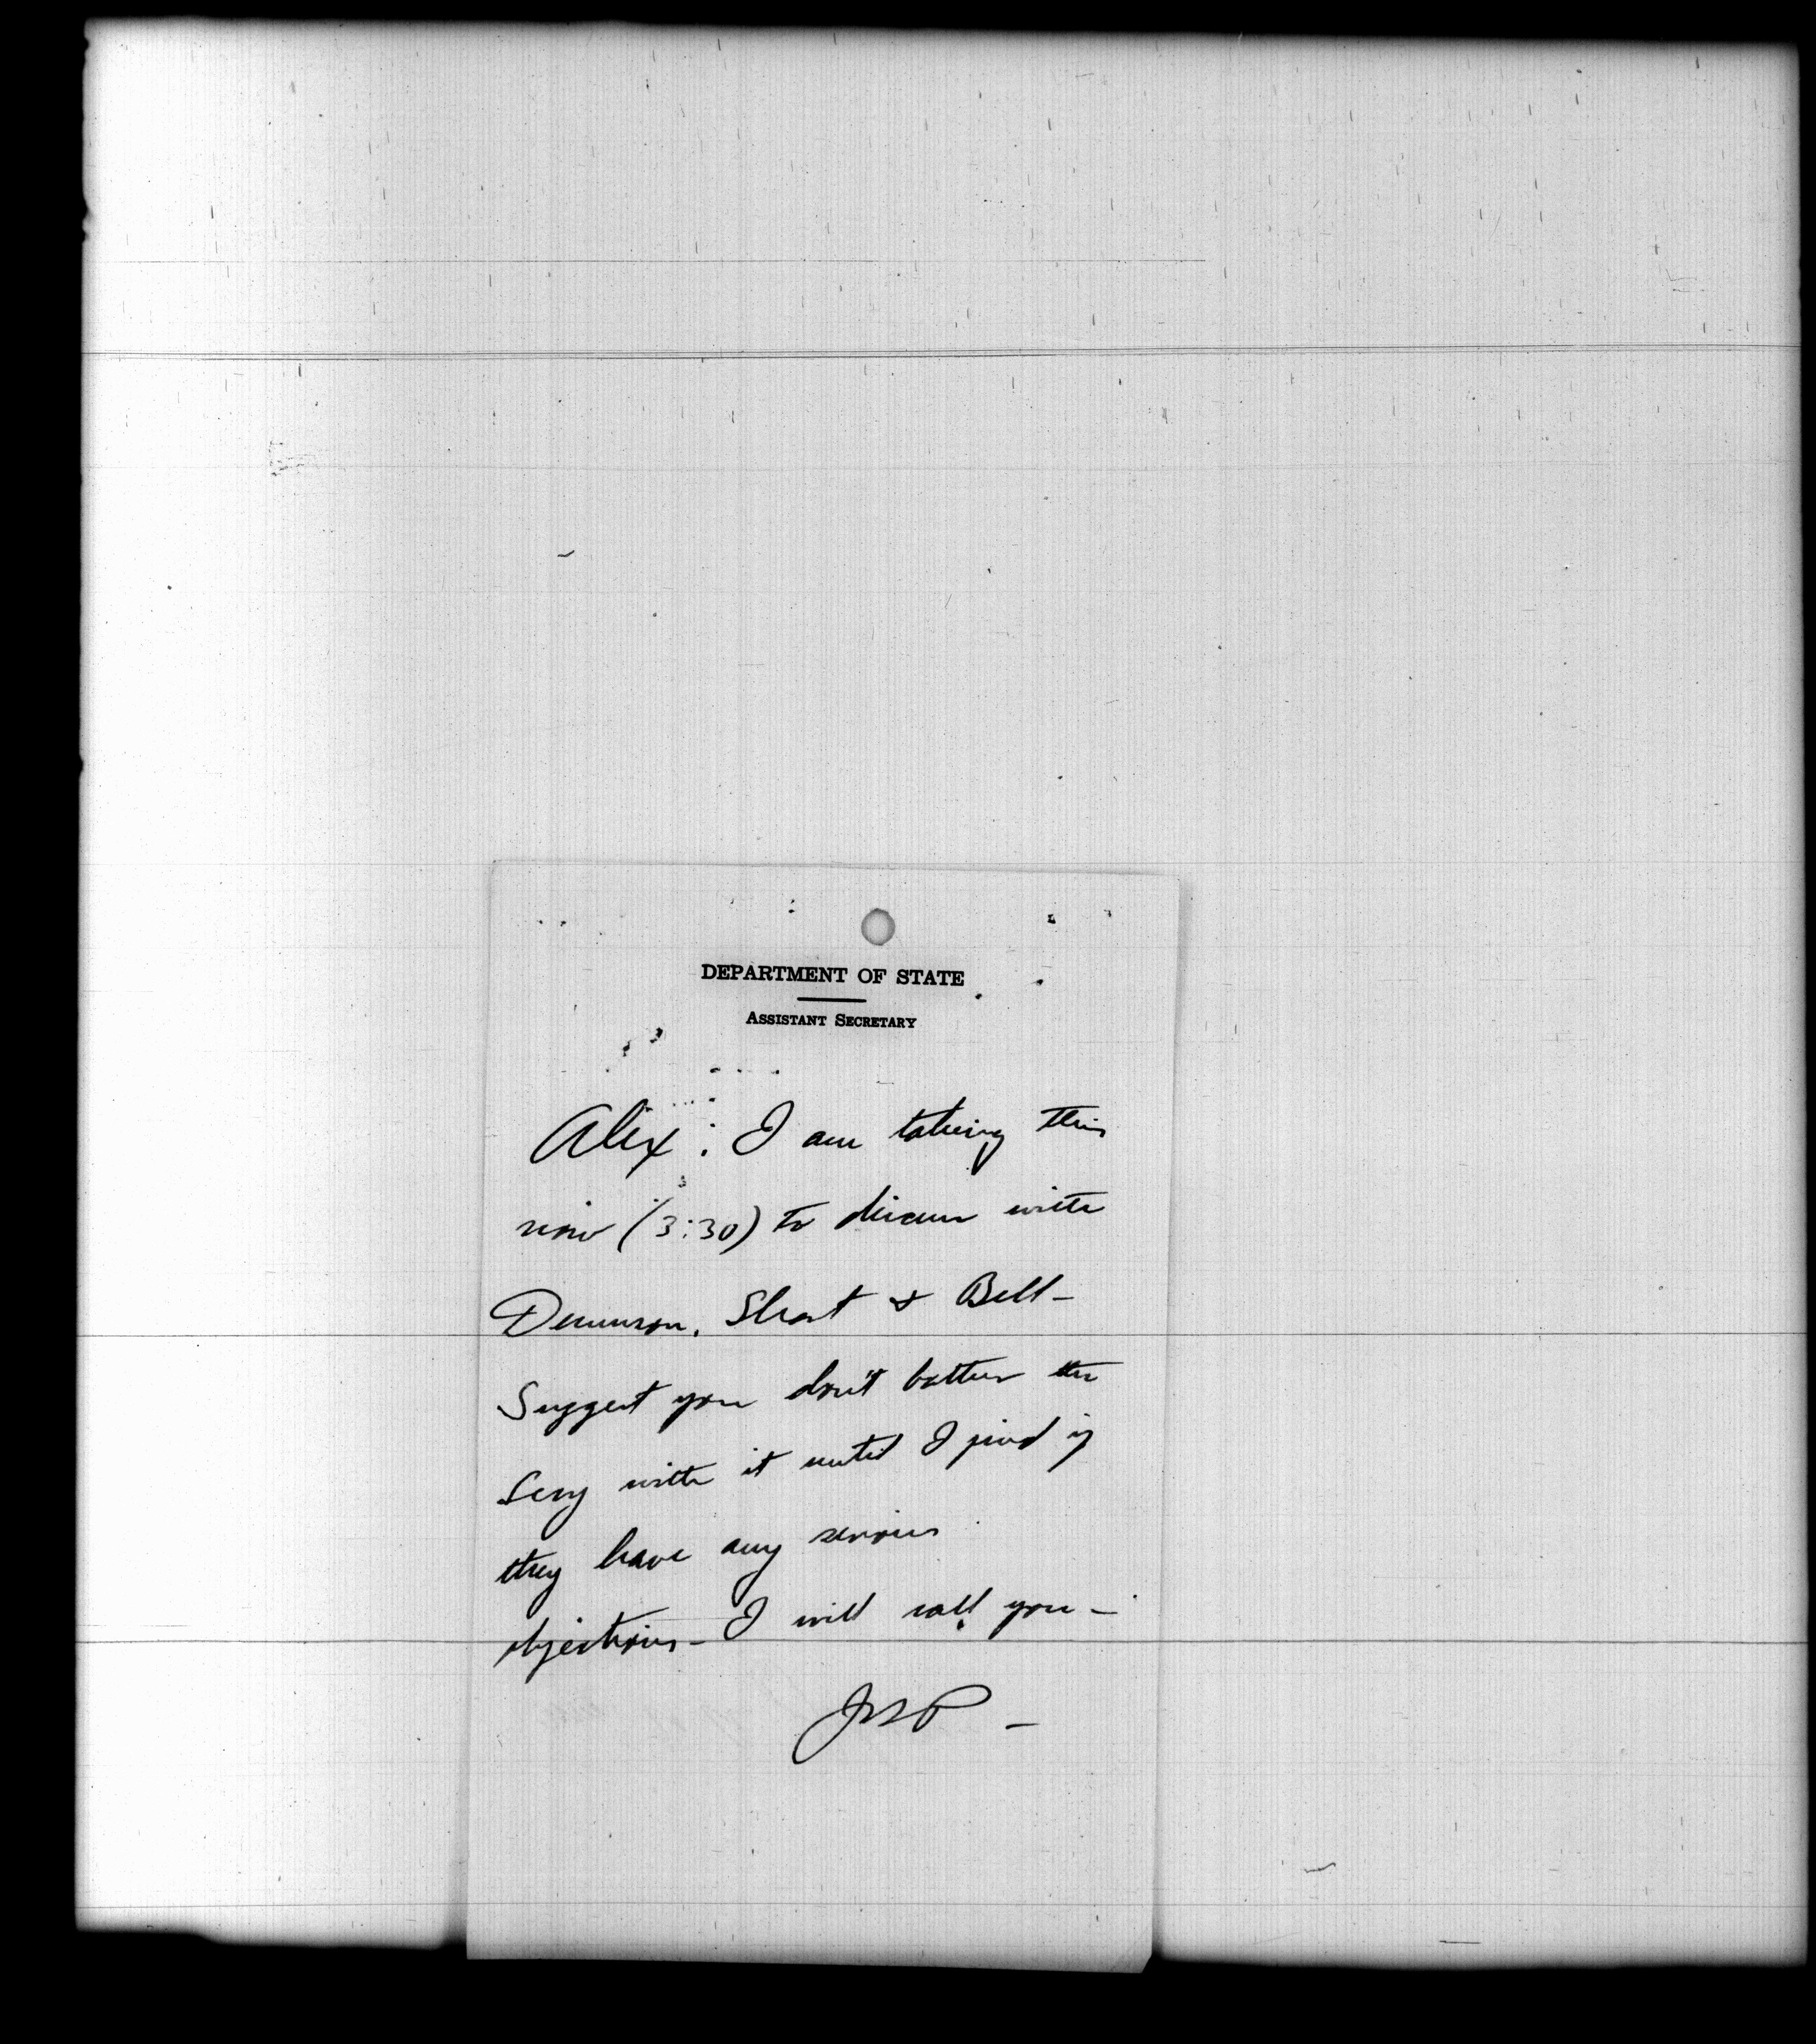 DEPARTMENT OF STATE
ASSISTANT SECRETARY
Alix: I am taking this
now (3:30) to discuss with
Dennison, Short & Bell-
Suggest you don't bother the
Secy with it until I find if
they have any serious
objections- I will call you-